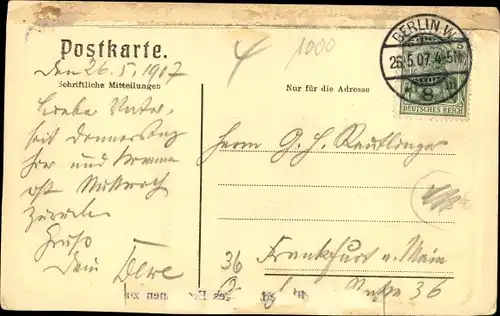 Postkarte.
Den 26.5.1907
Schriftliche Mitteilungen
Lieber Vater,
seit Donnerstag
hier und komme
erst Mittwoch
zurück.
Gruß
Dein
4
1000
BERLIN W
26.5.07. 4-5N
8
DEUTSCHES REICH
Nur für die Adresse
Herrn G. H. Reutlinger
Frankfurt a. Main
36
36